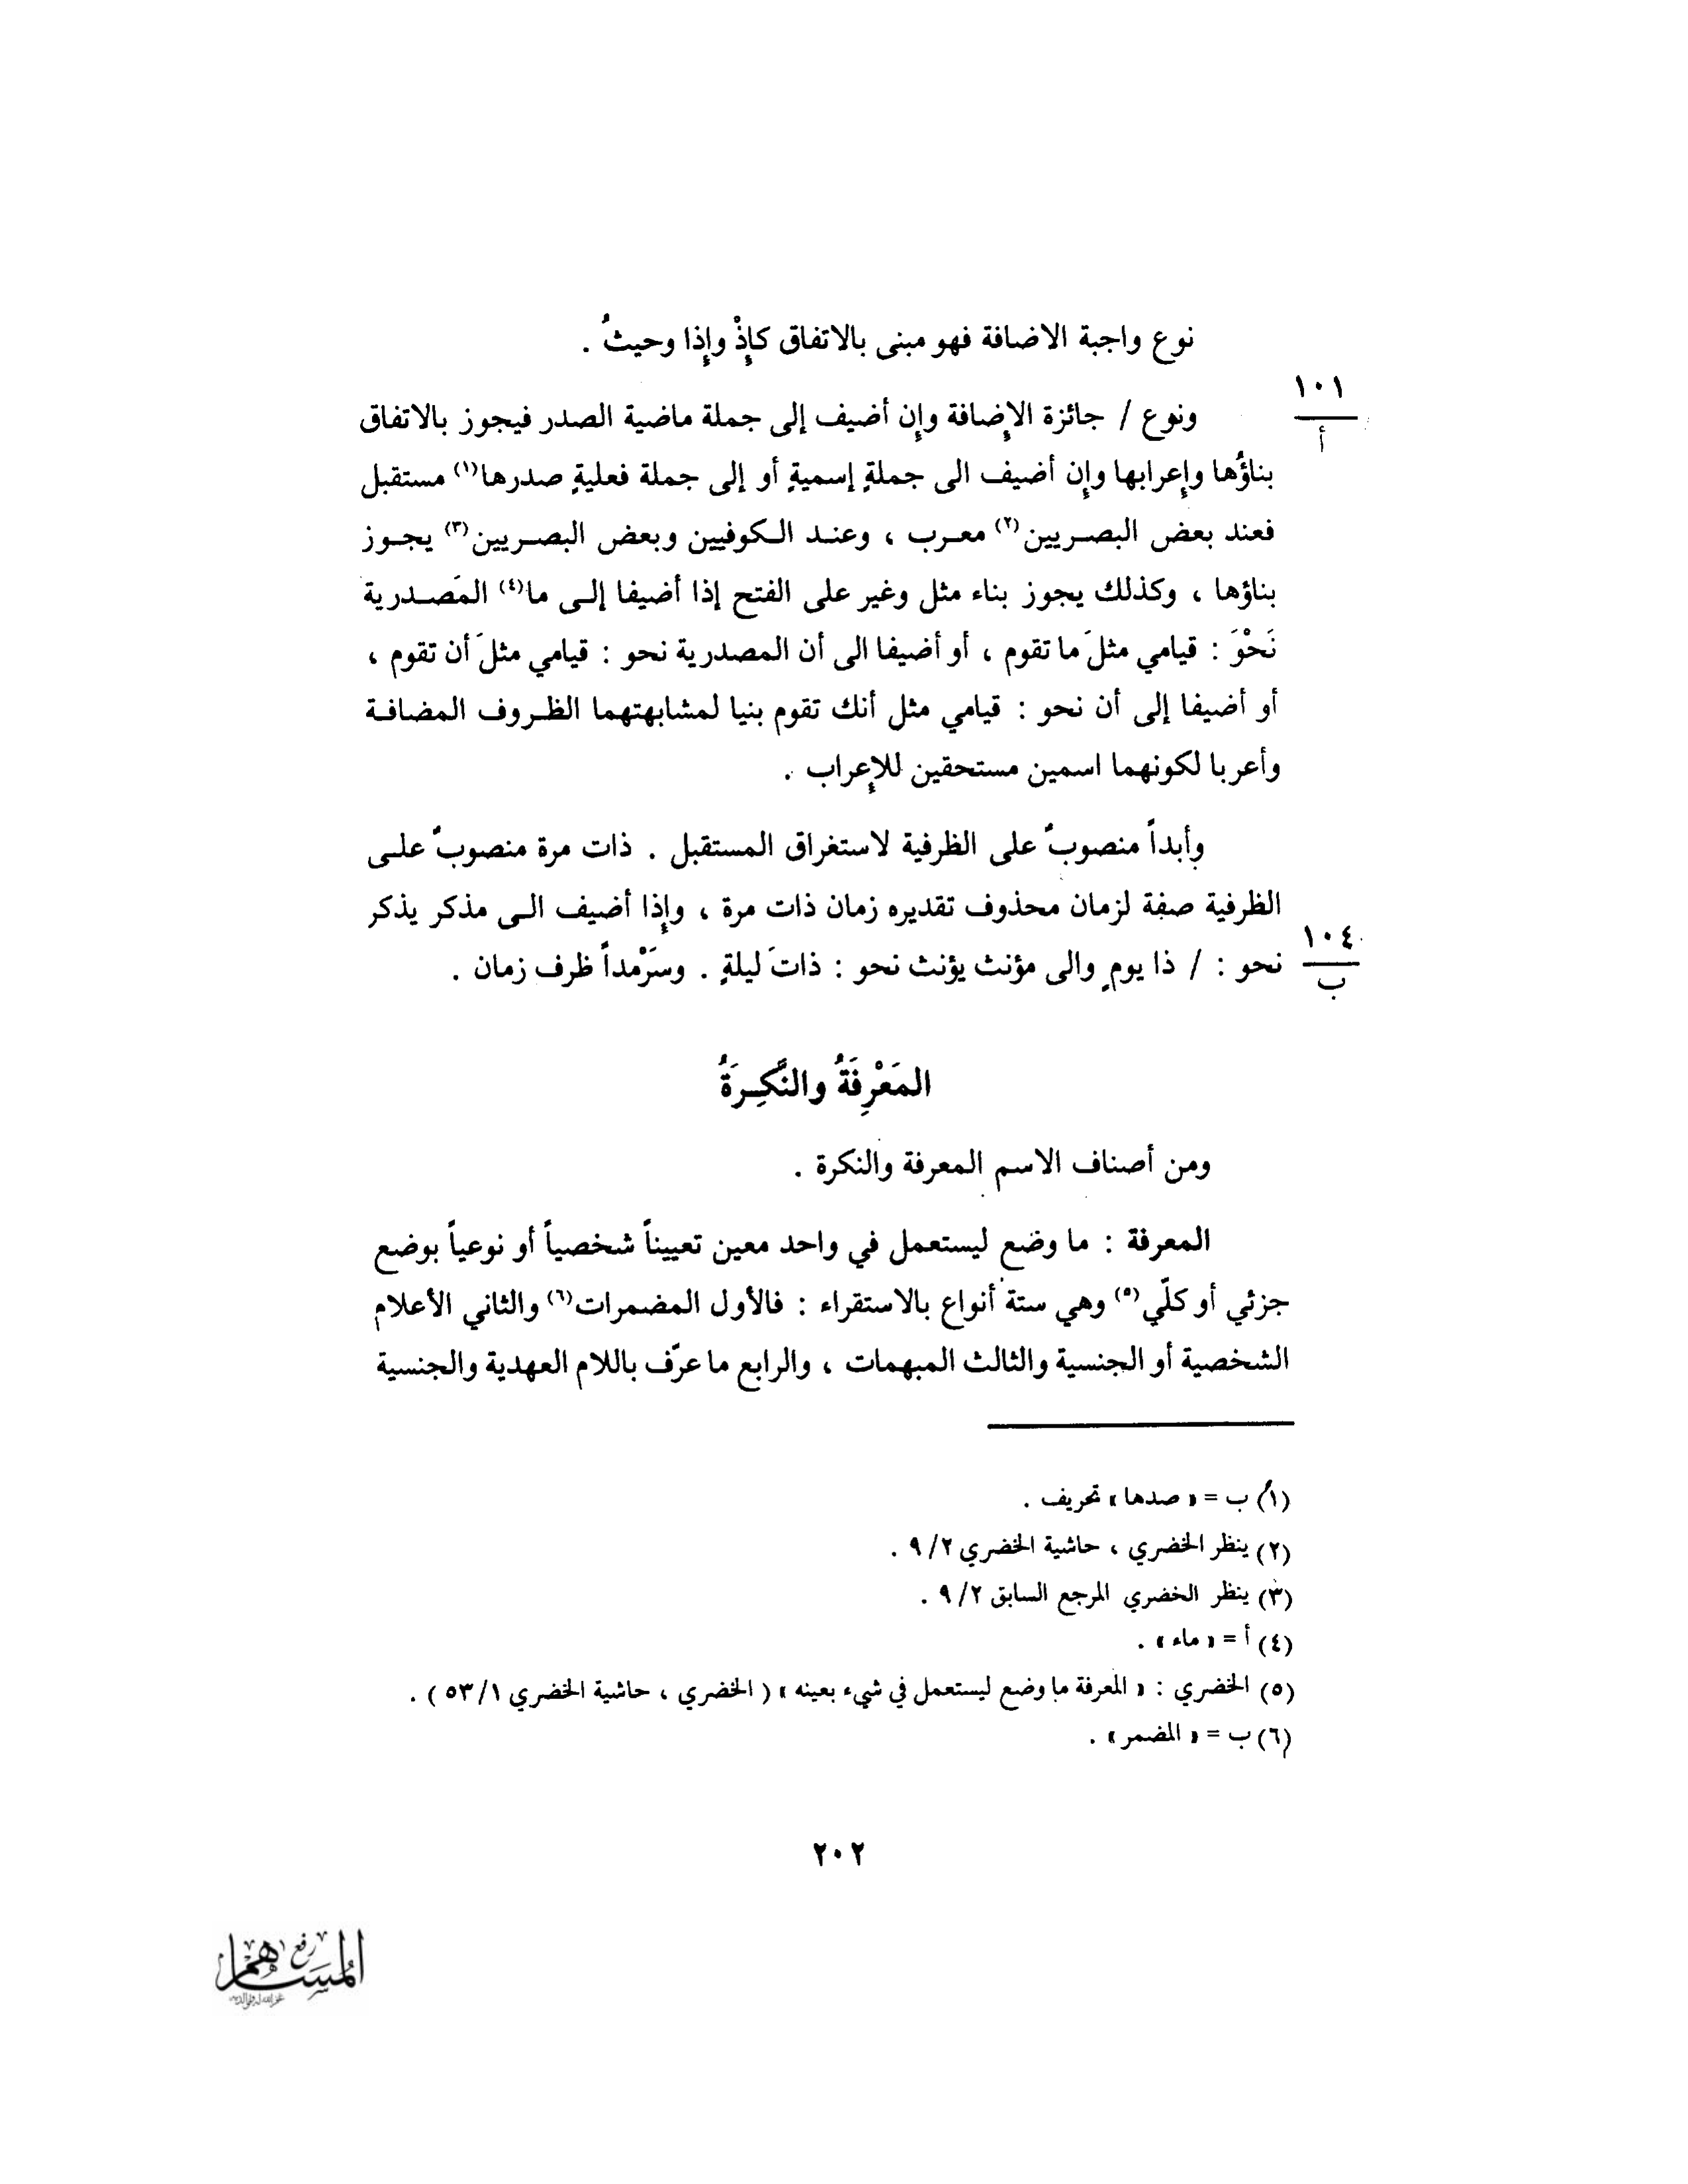 نوع واجبة الاضافة فهو مبنى بالاتفاق كإِذْ وإِذا وحيثُ .
١٠١
أ
ونوع / جائزة الإِضافة وإِن أضيف إلى جملة ماضية الصدر فيجوز بالاتفاق
بناؤُها وإِعرابها وإِن أضيف الى جملةٍ إسميةٍ أو إلى جملة فعليةٍ صدرها(١) مستقبل
فعند بعض البصريين(٢) معرب ، وعند الكوفيين وبعض البصريين(٣) يجوز
بناؤها ، وكذلك يجوز بناء مثل وغير على الفتح إذا أضيفا إلى ما(٤) المَصدرية
نَحْوَ : قيامي مثلَ ما تقوم ، أو أضيفا الى أن المصدرية نحو : قيامي مثلَ أن تقوم ،
أو أضيفا إلى أن نحو : قيامي مثل أنك تقوم بنيا لمشابهتهما الظروف المضافة
وأعربا لكونهما اسمين مستحقين للإِعراب .
وأبداً منصوبٌ على الظرفية لاستغراق المستقبل . ذات مرة منصوبٌ على
الظرفية صفة لزمان محذوف تقديره زمان ذات مرة ، وإِذا أضيف الى مذكر يذكر
١٠٤
ب
نحو : / ذا يومٍ والى مؤنث يؤنث نحو : ذاتَ ليلةٍ . وسَرْمداً ظرف زمان .
المَعْرِفَةُ والنَّكِرَةُ
ومن أصناف الاسم المعرفة والنكرة .
المعرفة : ما وضع ليستعمل في واحد معين تعييناً شخصياً أو نوعياً بوضع
جزئي أو كلّي(٥) وهي ستة أنواع بالاستقراء : فالأول المضمرات(٦) والثاني الأعلام
الشخصية أو الجنسية والثالث المبهمات ، والرابع ما عرّف باللام العهدية والجنسية
(١) ب = « صدها » تحريف .
(٢) ينظر الخضري ، حاشية الخضري ٩/٢ .
(٣) ينظر الخضري المرجع السابق ٩/٢ .
(٤) أ = « ماء » .
(٥) الخضري : « المعرفة ما وضع ليستعمل في شيء بعينه » ( الخضري ، حاشية الخضري ٥٣/١ ) .
(٦) ب = « المضمر » .
٢٠٢
رفع
المساهم